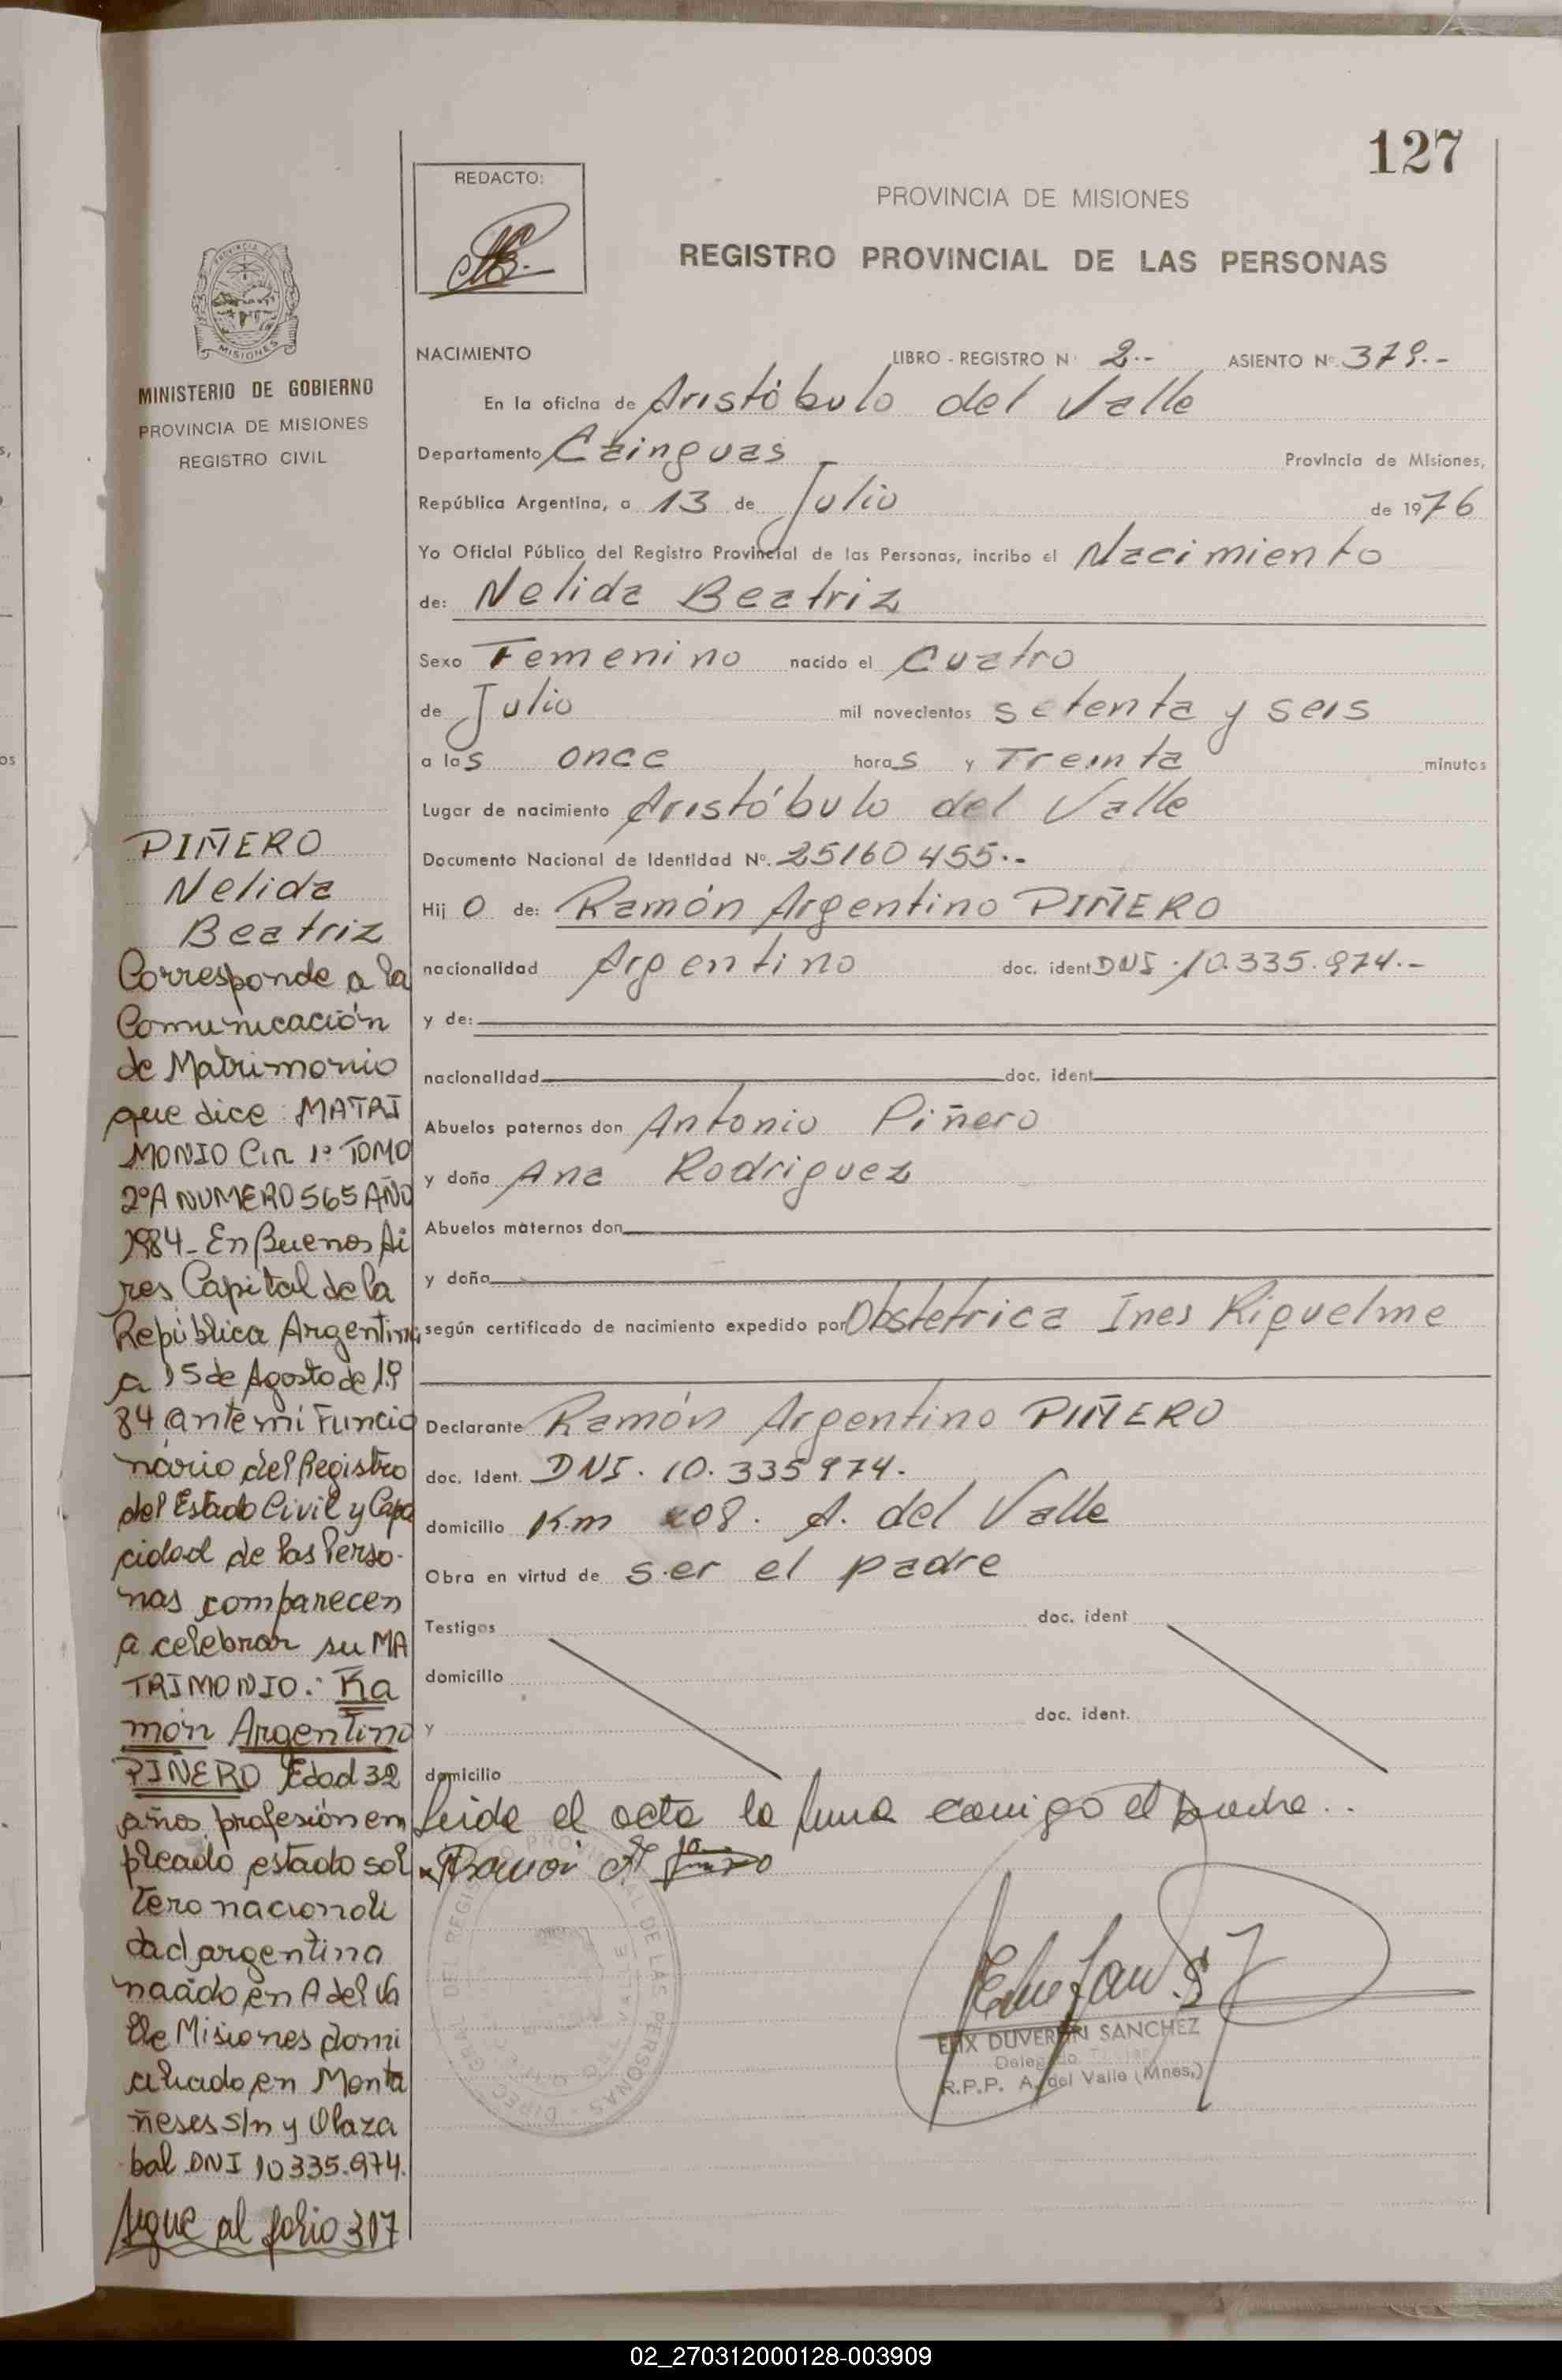 127
REDACTO:
PROVINCIA DE MISIONES
REGISTRO PROVINCIAL DE LAS PERSONAS
PROVINCIA DE
MISIONES
MINISTERIO DE GOBIERNO
PROVINCIA DE MISIONES
REGISTRO CIVIL
NACIMIENTO LIBRO - REGISTRO Nº 2.- ASIENTO Nº 379.-
En la oficina de Aristóbulo del Valle
Departamento Cainguas Provincia de Misiones,
República Argentina, a 13 de Julio de 1976
Yo Oficial Público del Registro Provincial de las Personas, incribo el Nacimiento
de: Nelida Beatriz
Sexo Femenino nacido el cuatro
de Julio mil novecientos setenta y seis
a las once horas y Treinta minutos
Lugar de nacimiento Aristóbulo del Valle
Documento Nacional de Identidad Nº. 25160455.-
Hijo de: Ramón Argentino PIÑERO
nacionalidad Argentino doc. ident DNI. 10.335.974.-
y de:
nacionalidad doc. ident.
Abuelos paternos don Antonio Piñero
y doña Ana Rodriguez
Abuelos maternos don
y doña
según certificado de nacimiento expedido por Obstetrica Ines Riquelme
Declarante Ramón Argentino PIÑERO
doc. Ident. DNI. 10.335974.
domicilio Km 208. A. del Valle
Obra en virtud de ser el padre
Testigos doc. ident
domicilio
y doc. ident.
domicilio
Leida el acta la firma conmigo el padre..
Ramon A
ELIX DUVERAN SANCHEZ
Delegado Titular
R.P.P. A. del Valle (Mnes.)
PIÑERO
Nelida
Beatriz
Corresponde a la
Comunicación
de Matrimonio
que dice: MATRI
MONIO Cin 1º TOMO
2ºA NUMERO 565 AÑO
1984_ En Buenos Ai
res Capital de la
República Argentina
a 15 de Agosto de 19
84 ante mi Funcio
nario del Registro
del Estado Civil y Capa
cidad de las Perso-
nas comparecen
a celebrar su MA
TRIMONIO: Ra
món Argentino
PIÑERO Edad 32
años profesión em
pleado estado sol
tero nacionali
dad argentina
nacido en A del Va
lle Misiones domi
ciliado en Monta
ñeses s/n y Olaza
bal DNI 10335.974.
Sigue al folio 317
02_270312000128-003909